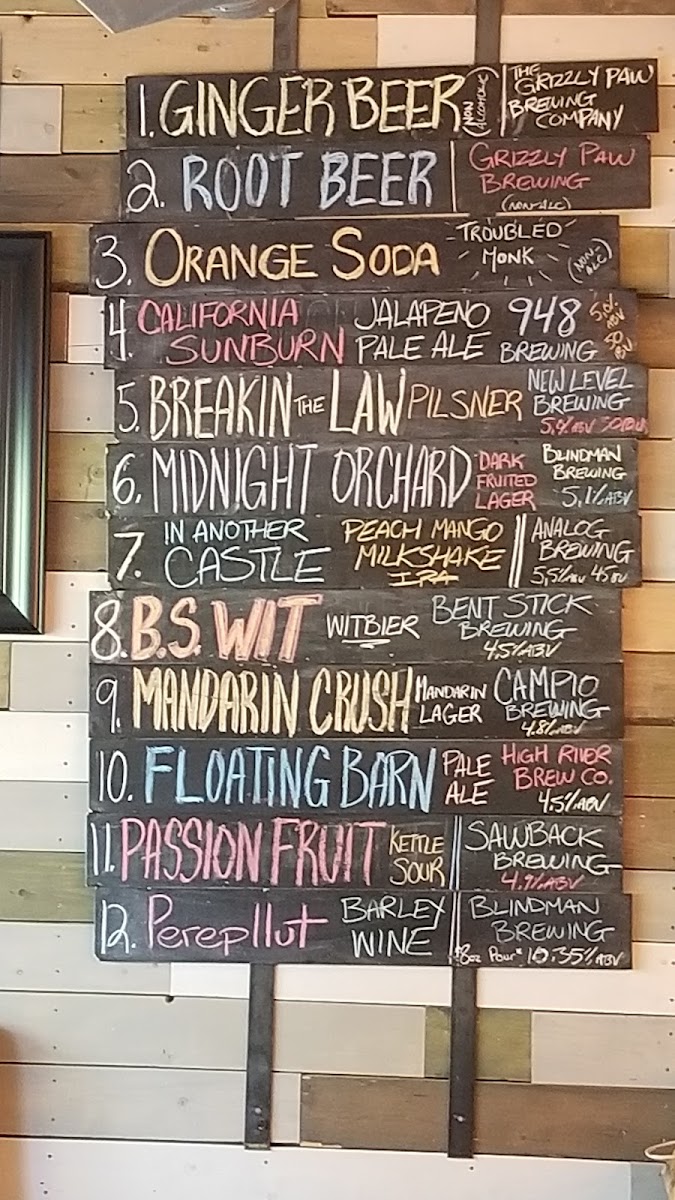 1. GINGER BEER (NON ALCOHOLIC) THE GRIZZLY PAW BREWING COMPANY
2. ROOT BEER GRIZZLY PAW BREWING (NON-ALC)
3. ORANGE SODA TROUBLED MONK (NON-ALC)
4. CALIFORNIA SUNBURN JALAPENO PALE ALE 948 BREWING 5.0% ABV 50 IBU
5. BREAKIN THE LAW PILSNER NEW LEVEL BREWING 5.9% ABV
6. MIDNIGHT ORCHARD DARK FRUITED LAGER BLINDMAN BREWING 5.1% ABV
7. IN ANOTHER CASTLE PEACH MANGO MILKSHAKE IPA ANALOG BREWING 5.5% ABV 45 IBU
8. B.S. WIT WITBIER BENT STICK BREWING 4.5% ABV
9. MANDARIN CRUSH MANDARIN LAGER CAMPIO BREWING 4.8% ABV
10. FLOATING BARN PALE ALE HIGH RIVER BREW CO. 4.5% ABV
11. PASSION FRUIT KETTLE SOUR SAWBACK BREWING 4.9% ABV
12. Perepllut BARLEY WINE BLINDMAN BREWING *8oz Pour* 10.35% ABV